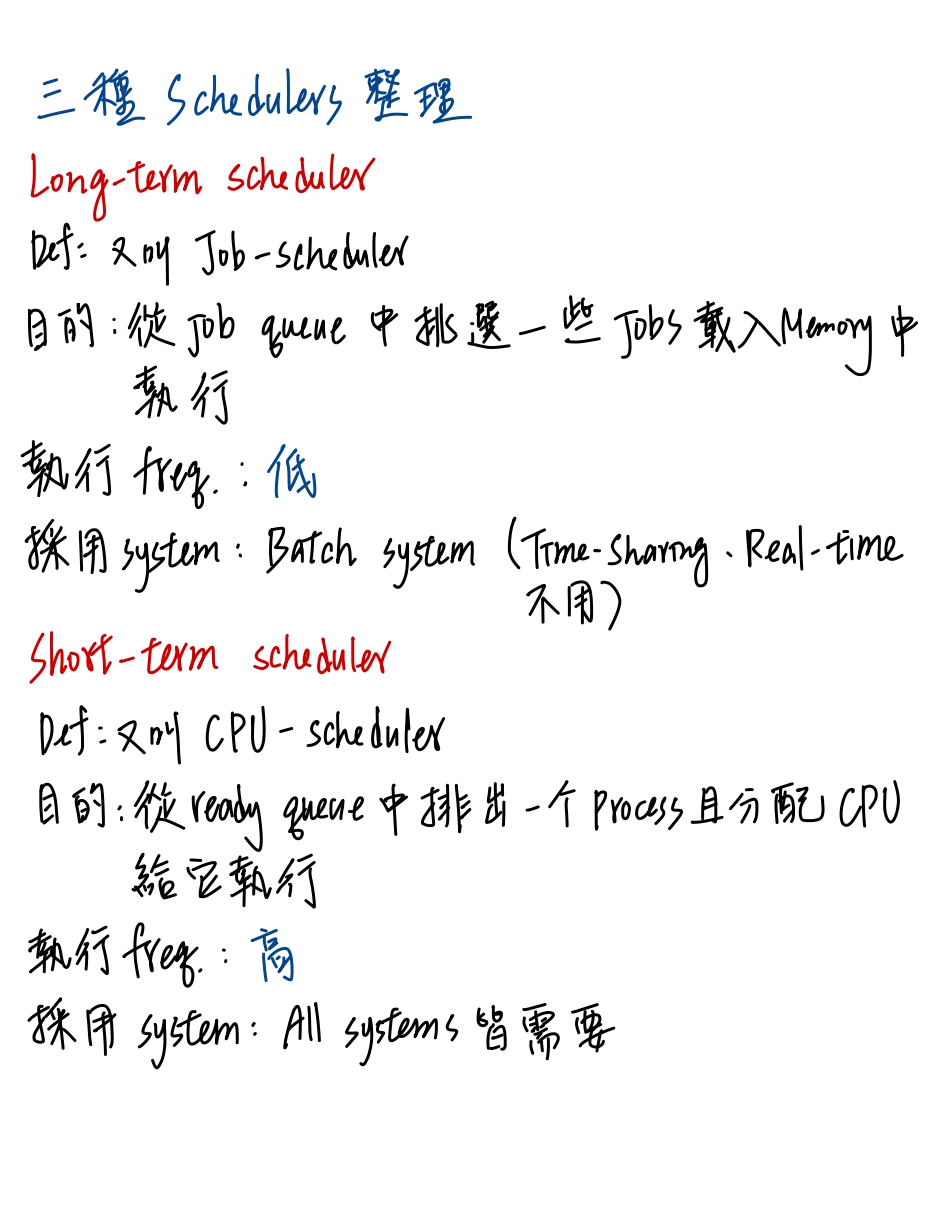 三種 Schedulers 整理
Long-term scheduler
Def: 又叫 Job-scheduler
目的:從 Job queue 中挑選一些 Jobs 載入Memory中
執行
執行 freq. : 低
採用 system : Batch system (Time-sharing、Real-time
不用)
Short-term scheduler
Def: 又叫 CPU-scheduler
目的:從 ready queue 中排出一个 Process 且分配 CPU
給它執行
執行 freq. : 高
採用 system : All systems 皆需要